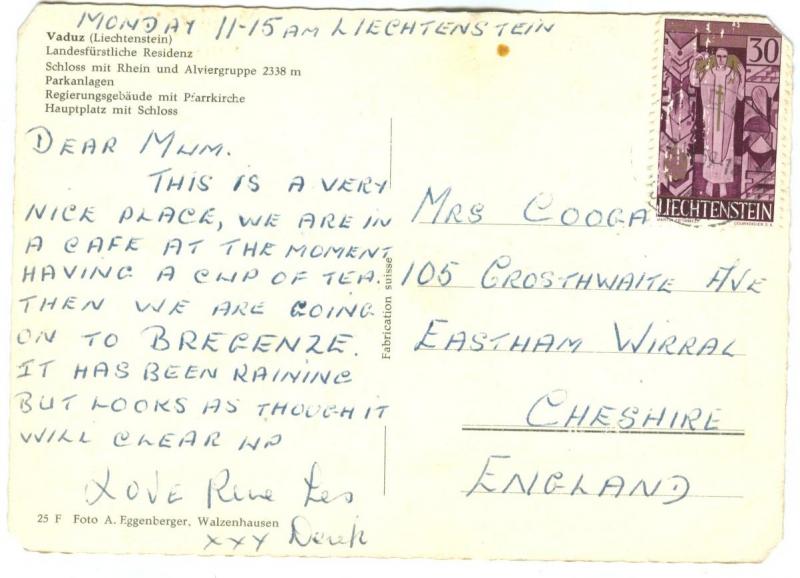 MONDAY 11-15 AM LIECHTENSTEIN
Vaduz (Liechtenstein)
Landesfürstliche Residenz
Schloss mit Rhein und Alviergruppe 2338 m
Parkanlagen
Regierungsgebäude mit Pfarrkirche
Hauptplatz mit Schloss
DEAR MUM.
THIS IS A VERY
NICE PLACE, WE ARE IN
A CAFE AT THE MOMENT
HAVING A CUP OF TEA.
THEN WE ARE GOING
ON TO BREGENZE.
IT HAS BEEN RAINING
BUT LOOKS AS THOUGH IT
WILL CLEAR UP
LOVE Rene Les
xxx Derek
25 F Foto A. Eggenberger, Walzenhausen
Fabrication suisse
30
LIECHTENSTEIN
MRS COOGA
105 CROSTHWAITE AVE
EASTHAM WIRRAL
CHESHIRE
ENGLAND